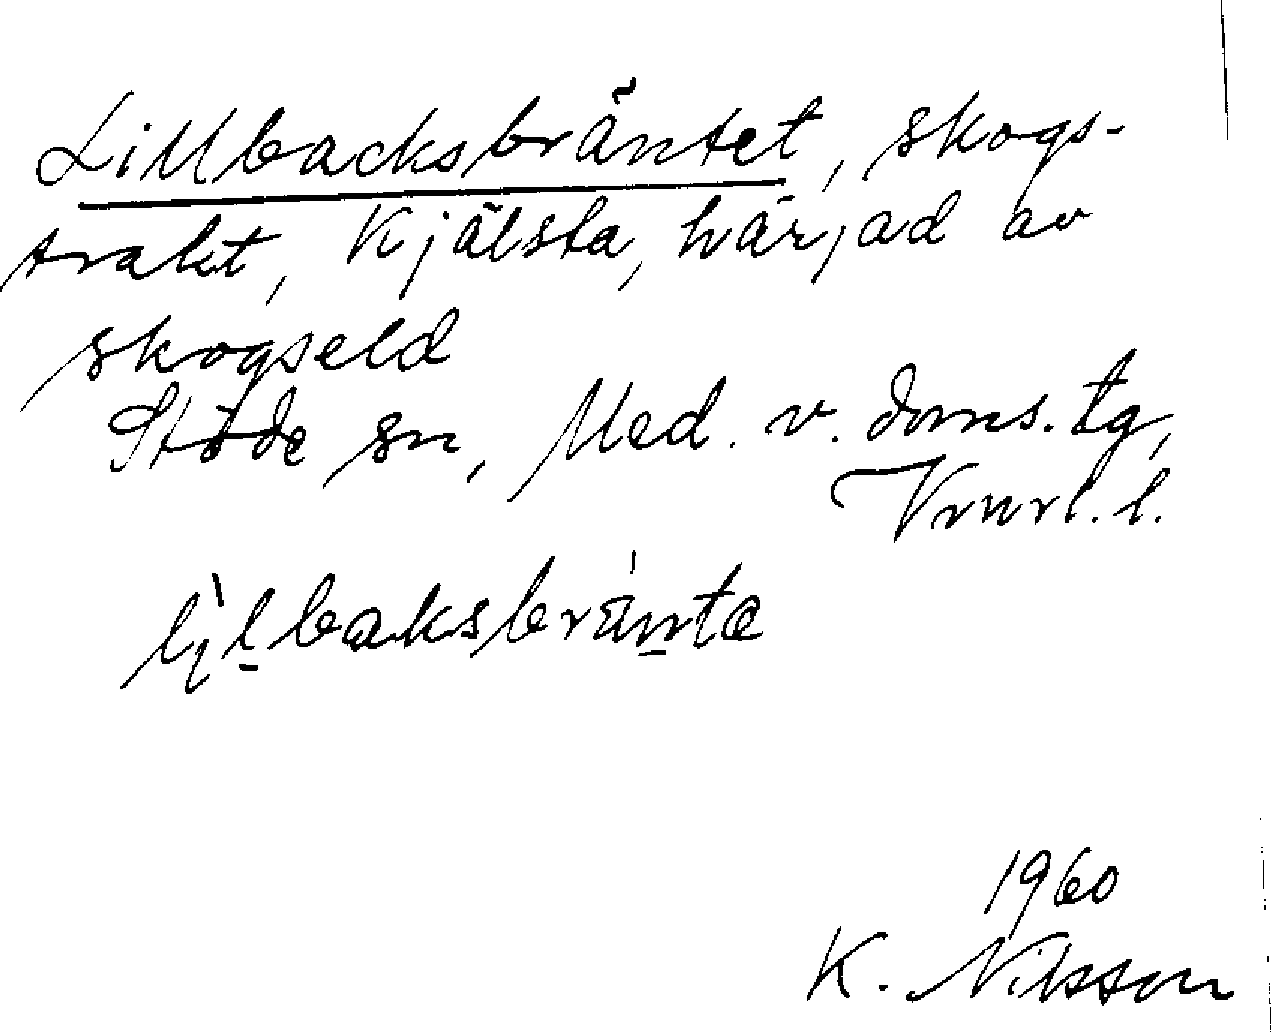 Lillbacksbräntet, skogs-
trakt, Kjälsta, härjad av
skogseld
Stöde sn, Med. v. doms. tg,
Vnrl. l.
lì̬l̠baksbrän̠ta
1960
K. Nilsson